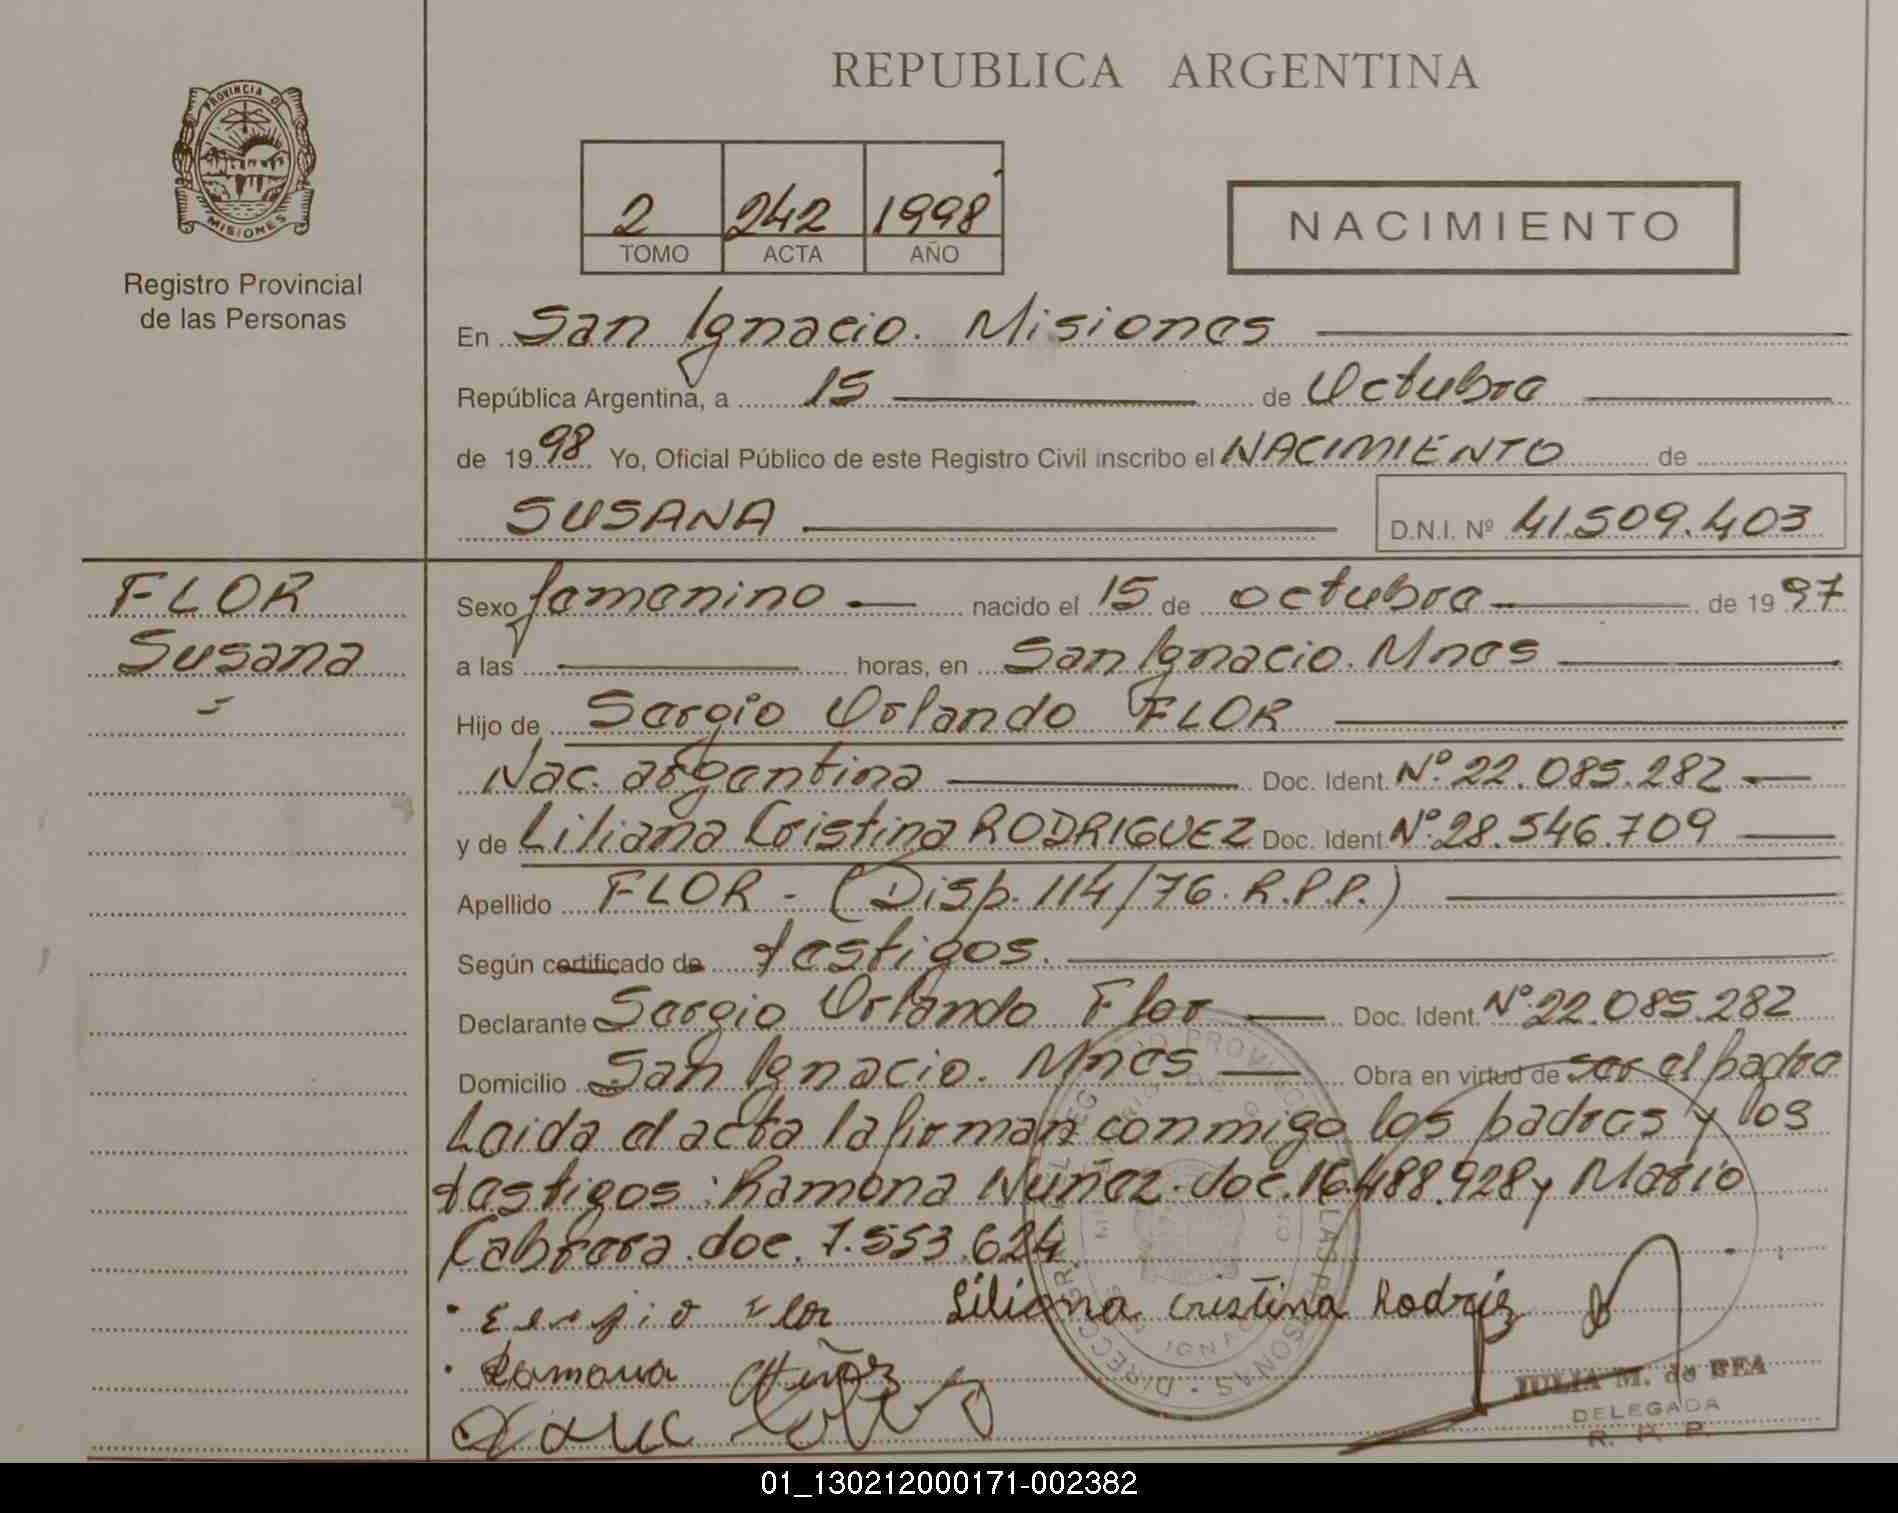 REPUBLICA ARGENTINA
PROVINCIA DE
MISIONES
Registro Provincial
de las Personas
2 242 1998
TOMO ACTA AÑO
NACIMIENTO
En San Ignacio. Misiones
República Argentina, a 15 de Octubre
de 1998 Yo, Oficial Público de este Registro Civil inscribo el NACIMIENTO de
SUSANA D.N.I. Nº 41.509.403
FLOR
Susana
Sexo femenino nacido el 15 de octubre de 1997
a las horas, en San Ignacio. Mnes
Hijo de Sergio Orlando FLOR
Nac. argentina Doc. Ident. Nº 22.085.282
y de Liliana Cristina RODRIGUEZ Doc. Ident. Nº 28.546.709
Apellido FLOR - (Disp. 114/76. R.P.P.)
Según certificado de testigos.
Declarante Sergio Orlando Flor Doc. Ident. Nº 22.085.282
Domicilio San Ignacio. Mnes Obra en virtud de ser el padre
Leida el acta la firman conmigo los padres y los
testigos: Ramona Nuñez. doc. 16.488.928 y Mario
Cabrera. doc. 7.553.624
Sergio Flor Liliana Cristina
Ramona Nuñez
JULIA M. de BEA
DELEGADA
R. P. P.
01_130212000171-002382